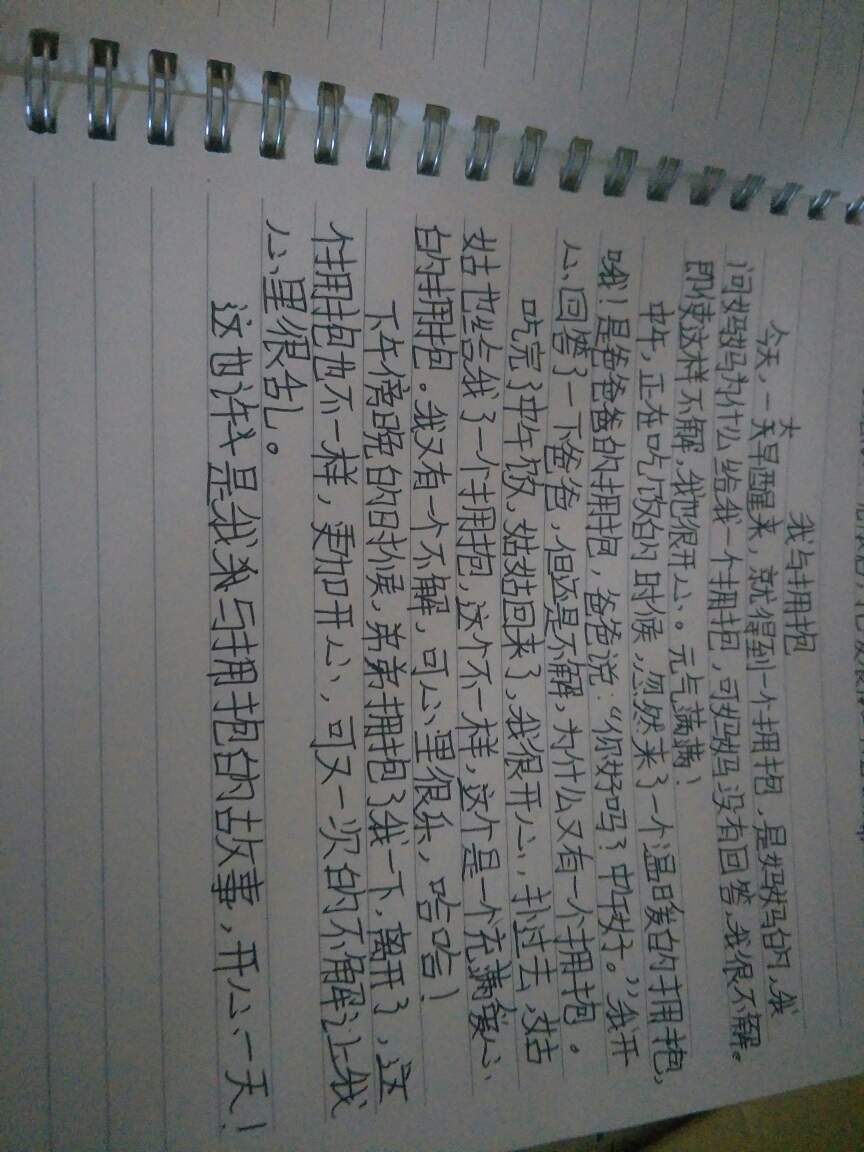 我与拥抱
今天，一大早醒来，就得到一个拥抱，是妈妈的，我
问妈妈为什么给我一个拥抱，可妈妈没有回答，我很不解。
即使这样不解，我也很开心。元气满满！
中午，正在吃饭的时候，忽然来了一个温暖的拥抱，
哦！是爸爸的拥抱，爸爸说：“你好吗？中午好。”我开
心、回答了一下爸爸，但还是不解，为什么又有一个拥抱。
吃完了中午饭，姑姑回来了，我很开心，扑过去，姑
姑也给我了一个拥抱，这个不一样，这个是一个充满爱心
的拥抱。我又有一个不解，可心里很乐，哈哈！
下午傍晚的时候，弟弟拥抱了我一下，离开了，这
个拥抱也不一样，更加开心，可又一次的不解让我
心里很乱。
这也许是我与拥抱的故事，开心一天！